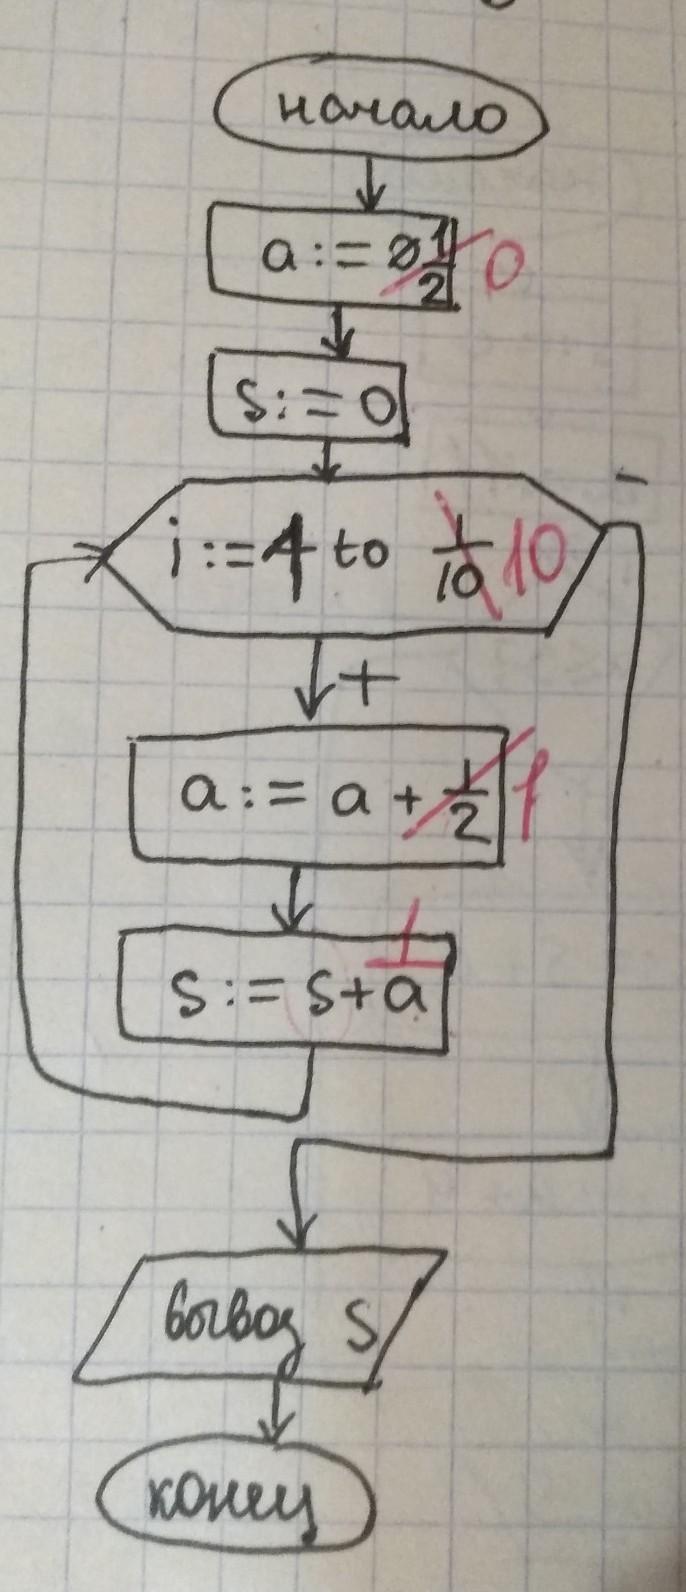 начало
a := 0 1/2 0
S := 0
i := 1 to 1/10 10
-
+
a := a + 1/2 1
S := S + 1/a
вывод S
конец